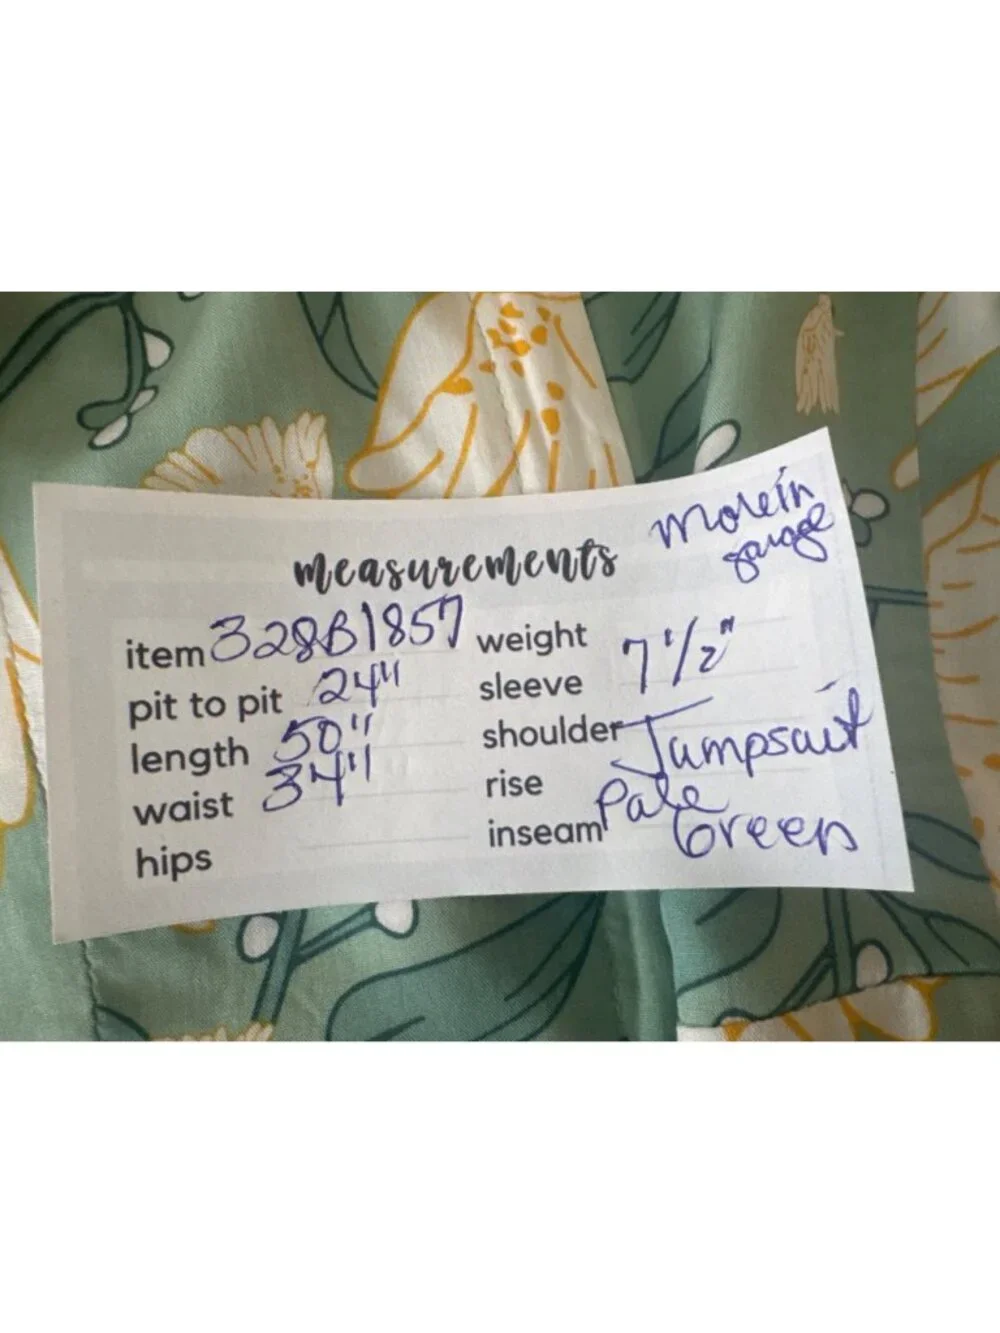 More in
garage
measurements
item 328B1857
pit to pit 24"
length 50"
waist 34"
hips
weight
sleeve 7 1/2"
shoulder
Jumpsuit
rise
Pale
inseam
Green